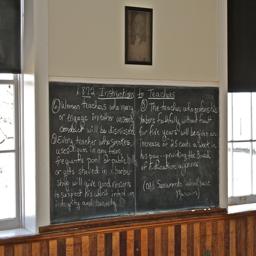 1872 Instructions to Teachers
⑥ Women teachers who marry
or engage in
conduct will be dismissed
Every teacher who smokes,
uses liquor in any form
frequents pool or public
or gets shaved in a barber
shop will give good reasons
to suspect his worth, intent
integrity and
⑧ The teacher who performs his
labors faithfully without fault
for five years will be given an
increase of 25 cents a week in
his pay - providing the Board
of Education approves